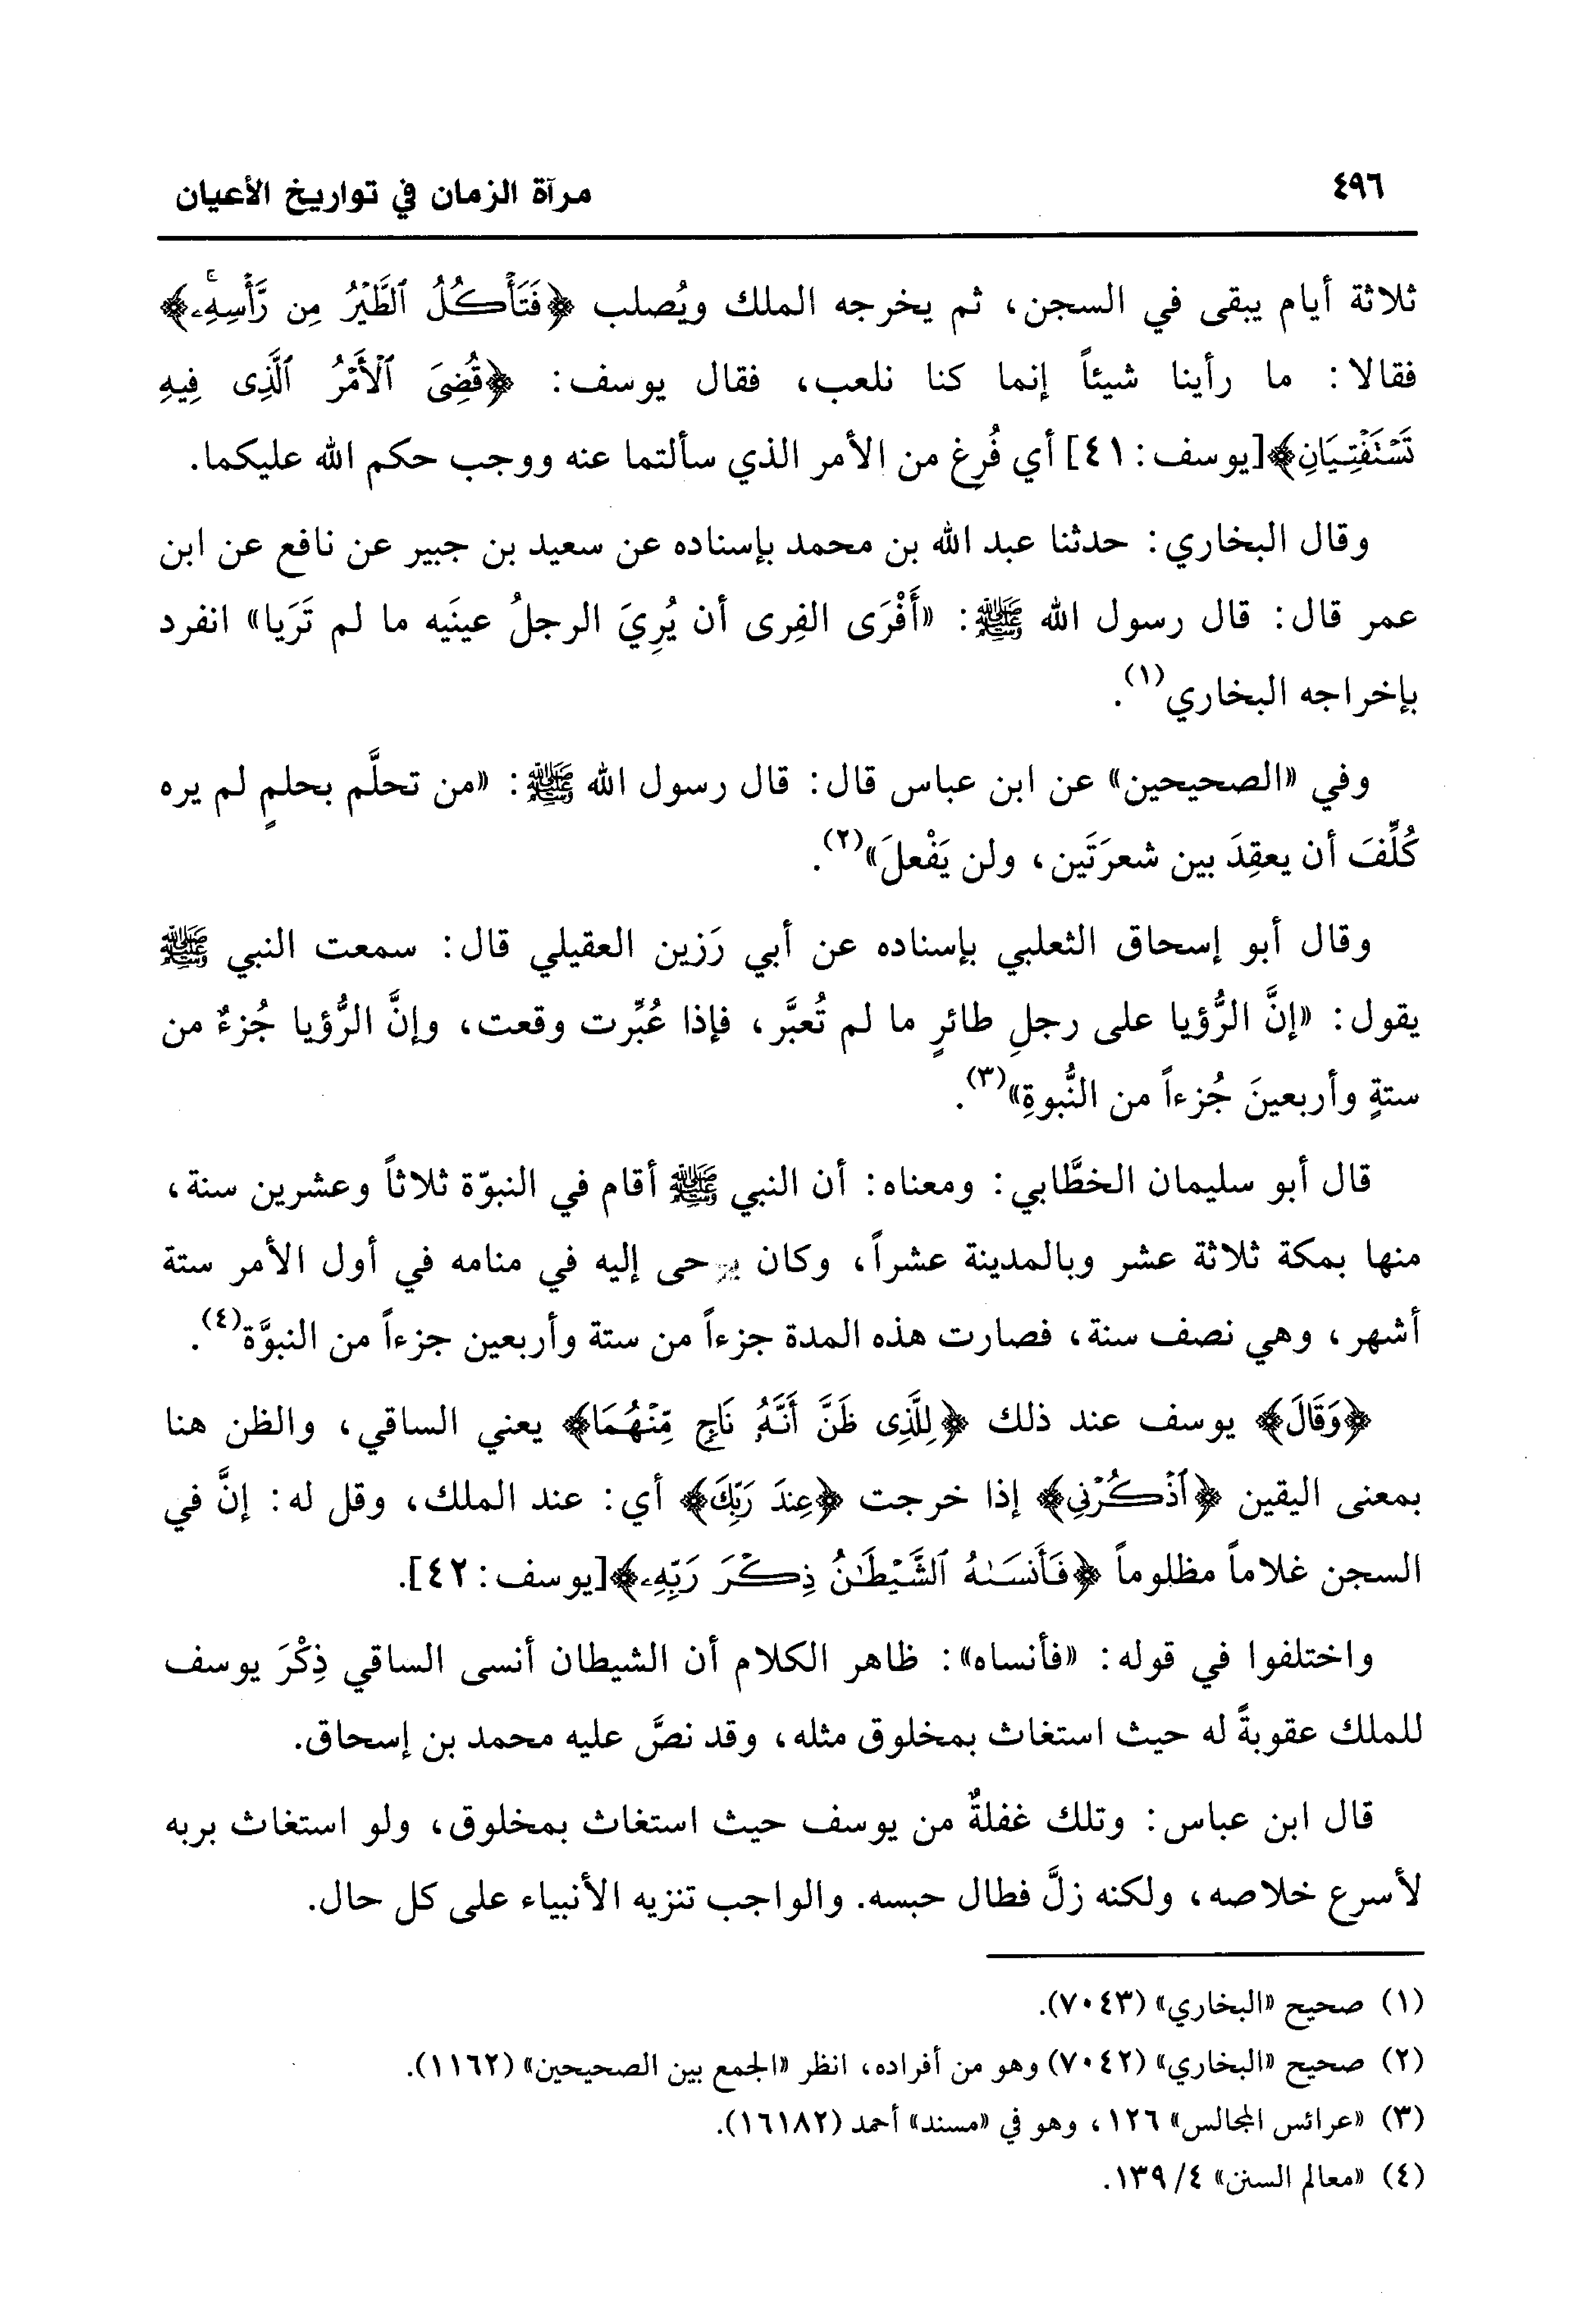 ٤٩٦
مرآة الزمان في تواريخ الأعيان
ثلاثة أيام يبقى في السجن، ثم يخرجه الملك ويُصلب ﴿فَتَأۡكُلُ ٱلطَّيۡرُ مِن رَّأۡسِهِۦۚ﴾
فقالا: ما رأينا شيئاً إنما كنا نلعب، فقال يوسف: ﴿قُضِيَ ٱلۡأَمۡرُ ٱلَّذِي فِيهِ
تَسۡتَفۡتِيَانِ﴾[يوسف: ٤١] أي فُرِغ من الأمر الذي سألتما عنه ووجب حكم الله عليكما.
وقال البخاري: حدثنا عبد الله بن محمد بإسناده عن سعيد بن جبير عن نافع عن ابن
عمر قال: قال رسول الله ﷺ: «أَفْرَى الفِرى أن يُرِيَ الرجلُ عينَيه ما لم تَرَيا» انفرد
بإخراجه البخاري(١).
وفي «الصحيحين» عن ابن عباس قال: قال رسول الله ﷺ: «من تحلَّم بحلمٍ لم يره
كُلِّفَ أن يعقِدَ بين شعرَتَين، ولن يَفْعلَ»(٢).
وقال أبو إسحاق الثعلبي بإسناده عن أبي رَزين العقيلي قال: سمعت النبي ﷺ
يقول: «إنَّ الرُّؤيا على رجلِ طائرٍ ما لم تُعبَّر، فإذا عُبِّرت وقعت، وإنَّ الرُّؤيا جُزءٌ من
ستةٍ وأربعينَ جُزءاً من النُّبوةِ»(٣).
قال أبو سليمان الخطَّابي: ومعناه: أن النبي ﷺ أقام في النبوّة ثلاثاً وعشرين سنة،
منها بمكة ثلاثة عشر وبالمدينة عشراً، وكان يوحى إليه في منامه في أول الأمر ستة
أشهر، وهي نصف سنة، فصارت هذه المدة جزءاً من ستة وأربعين جزءاً من النبوَّة(٤).
﴿وَقَالَ﴾ يوسف عند ذلك ﴿لِلَّذِي ظَنَّ أَنَّهُۥ نَاجٖ مِّنۡهُمَا﴾ يعني الساقي، والظن هنا
بمعنى اليقين ﴿ٱذۡكُرۡنِي﴾ إذا خرجت ﴿عِندَ رَبِّكَ﴾ أي: عند الملك، وقل له: إنَّ في
السجن غلاماً مظلوماً ﴿فَأَنسَىٰهُ ٱلشَّيۡطَٰنُ ذِكۡرَ رَبِّهِۦ﴾[يوسف: ٤٢].
واختلفوا في قوله: «فأنساه»: ظاهر الكلام أن الشيطان أنسى الساقي ذِكْرَ يوسف
للملك عقوبةً له حيث استغاث بمخلوق مثله، وقد نصَّ عليه محمد بن إسحاق.
قال ابن عباس: وتلك غفلةٌ من يوسف حيث استغاث بمخلوق، ولو استغاث بربه
لأسرع خلاصه، ولكنه زلَّ فطال حبسه. والواجب تنزيه الأنبياء على كل حال.
(١) صحيح «البخاري» (٧٠٤٣).
(٢) صحيح «البخاري» (٧٠٤٢) وهو من أفراده، انظر «الجمع بين الصحيحين» (١١٦٢).
(٣) «عرائس المجالس» ١٢٦، وهو في «مسند» أحمد (١٦١٨٢).
(٤) «معالم السنن» ٤/ ١٣٩.